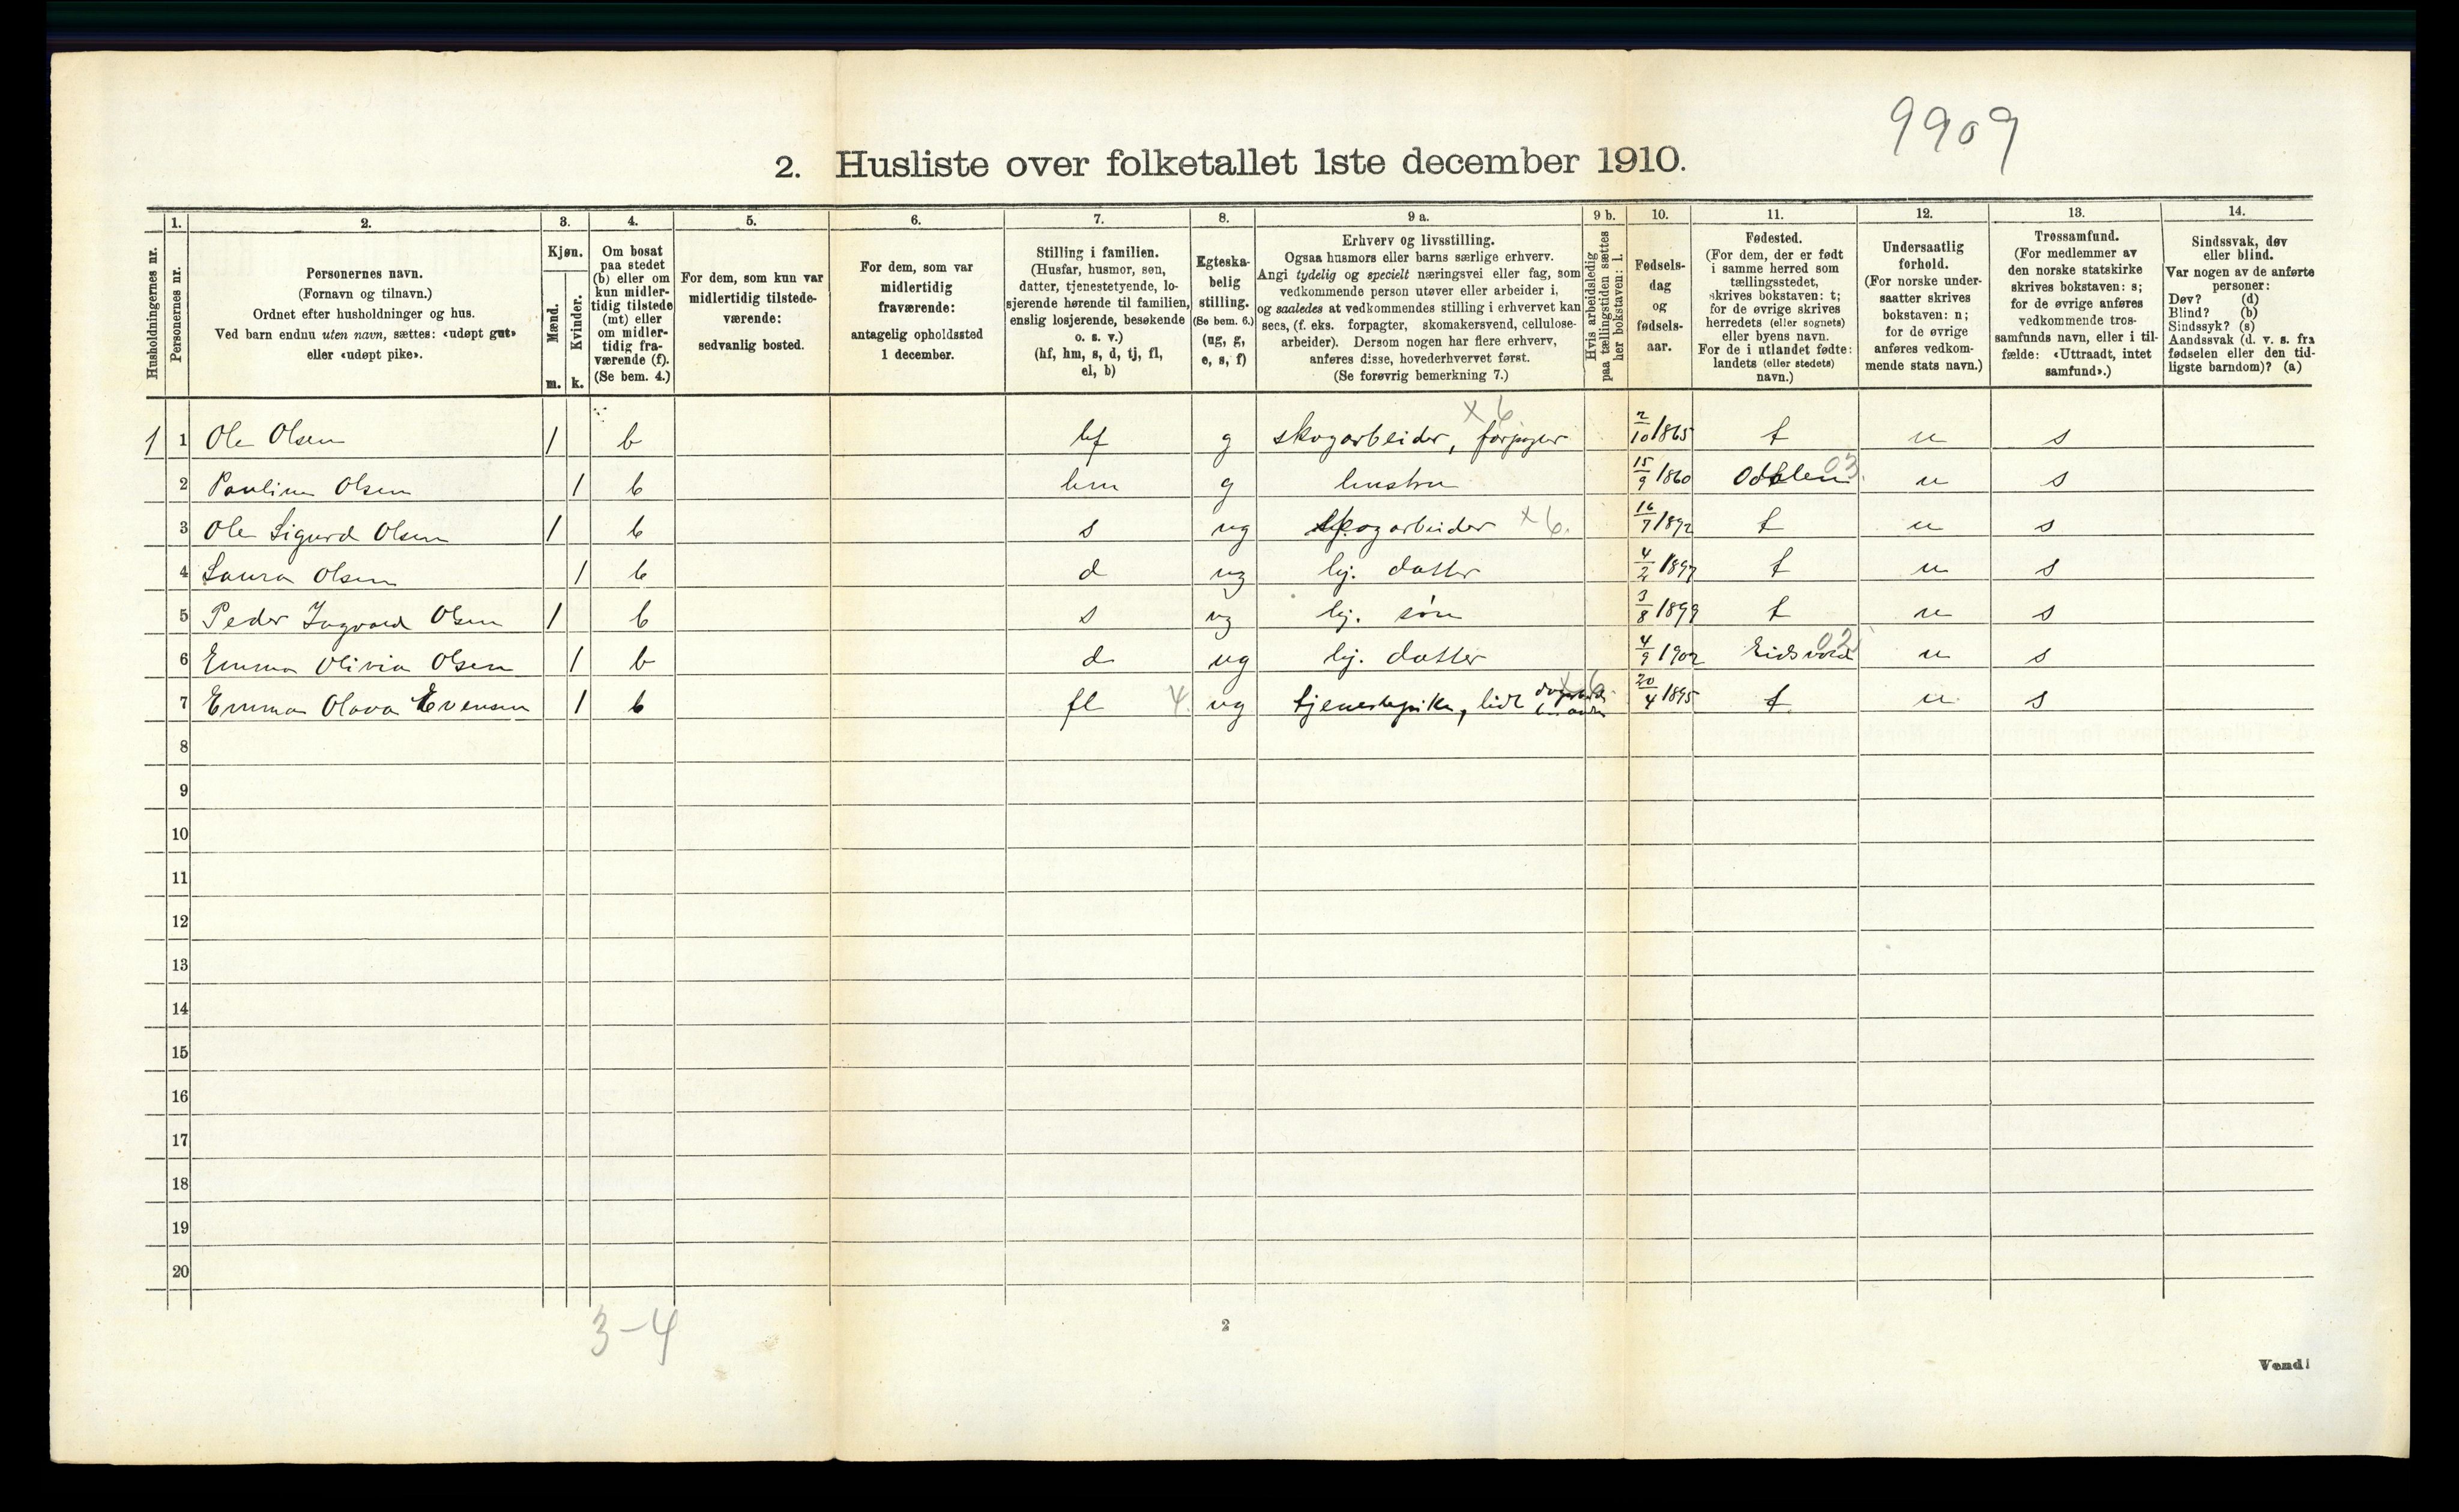 9909
2. Husliste over folketallet 1ste december 1910.
Husholdningernes nr.
1.
Personernes nr.
2.
Personernes navn.
(Fornavn og tilnavn.)
Ordnet efter husholdninger og hus.
Ved barn endnu uten navn, sættes: «udøpt gut»
eller «udøpt pike».
3.
Kjøn.
Mænd.
Kvinder.
m. k.
4.
Om bosat
paa stedet
(b) eller om
kun midler-
tidig tilstede
(mt) eller
om midler-
tidig fra-
værende (f).
(Se bem. 4.)
5.
For dem, som kun var
midlertidig tilstede-
værende:
sedvanlig bosted.
6.
For dem, som var
midlertidig
fraværende:
antagelig opholdssted
1 december.
7.
Stilling i familien.
(Husfar, husmor, søn,
datter, tjenestetyende, lo-
sjerende hørende til familien,
enslig losjerende, besøkende
o. s. v.)
(hf, hm, s, d, tj, fl,
el, b)
8.
Egteska-
belig
stilling.
(Se bem. 6.)
(ug, g,
e, s, f)
9 a.
Erhverv og livsstilling.
Ogsaa husmors eller barns særlige erhverv.
Angi tydelig og specielt næringsvei eller fag, som
vedkommende person utøver eller arbeider i,
og saaledes at vedkommendes stilling i erhvervet kan
sees, (f. eks. forpagter, skomakersvend, cellulose-
arbeider). Dersom nogen har flere erhverv,
anføres disse, hovederhvervet først.
(Se forøvrig bemerkning 7.)
9 b.
Hvis arbeidsledig
paa tællingstiden sættes
her bokstaven: l.
10.
Fødsels-
dag
og
fødsels-
aar.
11.
Fødested.
(For dem, der er født
i samme herred som
tællingsstedet,
skrives bokstaven: t;
for de øvrige skrives
herredets (eller sognets)
eller byens navn.
For de i utlandet fødte:
landets (eller stedets)
navn.)
12.
Undersaatlig
forhold.
(For norske under-
saatter skrives
bokstaven: n;
for de øvrige
anføres vedkom-
mende stats navn.)
13.
Trossamfund.
(For medlemmer av
den norske statskirke
skrives bokstaven: s;
for de øvrige anføres
vedkommende tros-
samfunds navn, eller i til-
fælde: «Uttraadt, intet
samfund».)
14.
Sindssvak, døv
eller blind.
Var nogen av de anførte
personer:
Døv? (d)
Blind? (b)
Sindssyk? (s)
Aandssvak (d. v. s. fra
fødselen eller den tid-
ligste barndom)? (a)
x 6
1 1 Ole Olsen 1 b hf g skogarbeider, 2/10 1865 t n s
2 Pauline Olsen 1 b hm g hustru 15/9 1860 Odalen 03. n s
3 Ole Sigurd Olsen 1 b s ug skogarbeider x 6. 16/7 1892 t n s
4 Laura Olsen 1 b d ug hj. datter 4/2 1897 t n s
5 Peder Ingvald Olsen 1 b s ug hj. søn 3/8 1899 t n s
6 Emma Olivia Olsen 1 b d ug hj. datter 4/9 1902 Eidsvold 02 n s
7 Emma Olava Evensen 1 b fl 4. ug tjenestepike, lidt x 6 20/4 1895 t. n s
8
9
10
11
12
13
14
15
16
17
18
19
20
3-4
2
Vend!